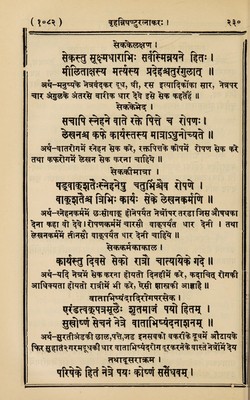 ( १०८२ ) बृहन्निघण्टुरत्नाकरः । २३०
सेकलक्षण ।
सेकस्तु सूक्ष्मधाराभिः सर्वस्मिन्नयने हितः ।
मीलिताक्षस्य मर्त्यस्य प्रदेहश्चतुरंगुलात् ॥
अर्थ-मनुष्यके नेत्रबंदकर दूध, घी, रस इत्यादिकोंका सार, नेत्रपर
चार अंगुलके अंतरसे बारीक धार देवे इसे सेक कहतेहैं ॥
सेकभेद ।
सचापि स्नेहने वाते रक्ते पित्ते च रोपणः ।
लेखनश्च कफे कार्यस्तस्य मात्राऽधुनोच्यते ॥
अर्थ-वातरोगमें स्नेहन सेक करे, रक्तपित्तके कोपमें रोपण सेक करे
तथा कफरोगमें लेखन सेक करना चाहिये ॥
सेककीमात्रा ।
षड्वाक्शतैः स्नेहनेषु चतुर्भिश्चैव रोपणे ।
वाक्शतैश्च त्रिभिः कार्यः सेके लेखनकर्मणि ॥
अर्थ-स्नेहनकर्ममें छःसौवाक् होनेपर्यंत नेत्रोंपर तरडा जिस औषधका
देना कहा वो देवे । रोपणकर्ममें चारसौ वाक्पूर्यंत धार देनी । तथा
लेखनकर्ममें तीनसौ वाक्पूर्यंत धार देनी चाहिये ॥
सेककर्मकाकाल ।
कार्यस्तु दिवसे सेको रात्रौ चात्यायिके गदे ॥
अर्थ-यदि नेत्रमें सेक करना होयतो दिनहीमें करे, कदाचित् रोगकी
आधिक्यता होयतो रात्रीमें भी करे; ऐसी शास्त्रकी आज्ञाहै ॥
वाताभिष्यंदादिरोगपरसेक ।
एरंडत्वक्पत्रमूलैः शृतमाजं पयो हितम् ।
सुखोष्णं सेचनं नेत्रे वाताभिष्यंदनाशनम् ॥
अर्थ-सुरतीअंडकी छाल,पत्ते,जड इनसबको बकरीके दूधमें औटायके
फिर सुहाता२गरमदूधकी धार वाताभिष्यंदरोग दूरकरनेके वास्ते नेत्रोंमें देय
तथादूसराक्रम ।
परिषेके हितं नेत्रे पयः कोष्णं ससैंधवम् ।